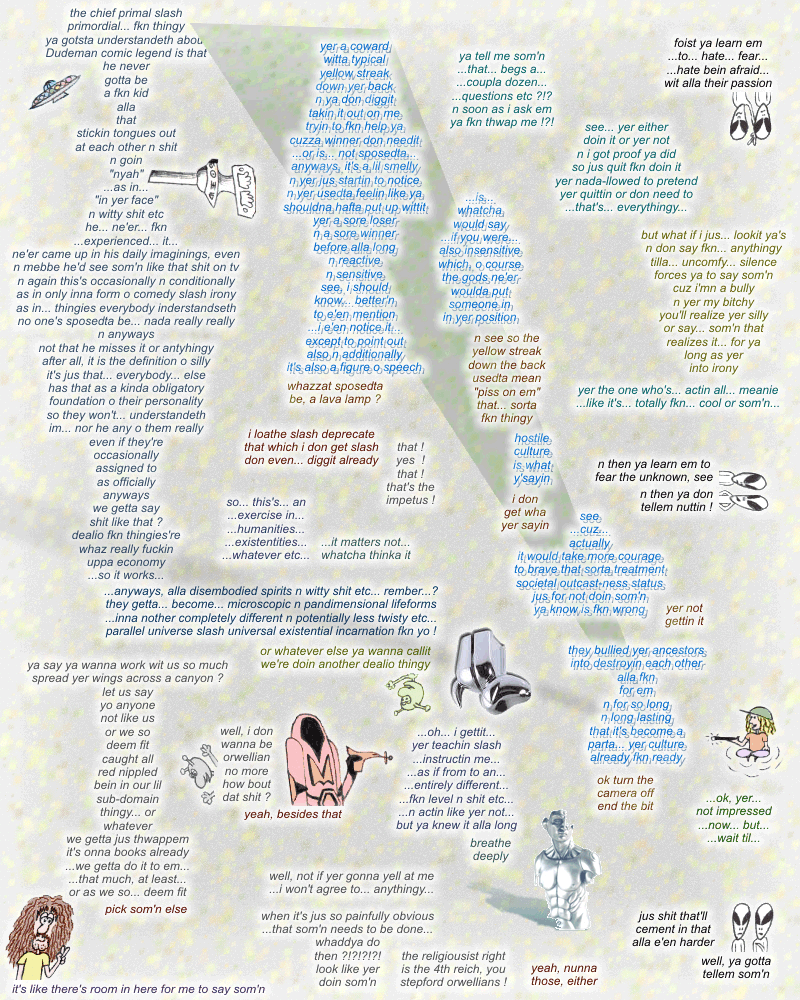 the chief primal slash
primordial... fkn thingy
ya gotsta understandeth about
Dudeman comic legend is that
he never
gotta be
a fkn kid
alla
that
stickin tongues out
at each other n shit
n goin
"nyah"
...as in...
"in yer face"
n witty shit etc
he... ne'er... fkn
...experienced... it...
ne'er came up in his daily imaginings, even
n mebbe he'd see som'n like that shit on tv
n again this's occasionally n conditionally
as in only inna form o comedy slash irony
as in... thingies everybody inderstandseth
no one's sposedta be... nada really really
n anyways
not that he misses it or antyhingy
after all, it is the definition o silly
it's jus that... everybody... else
has that as a kinda obligatory
foundation o their personality
so they won't... understandeth
im... nor he any o them really
even if they're
occasionally
assigned to
as officially
anyways
we getta say
shit like that ?
dealio fkn thingies're
whaz really fuckin
uppa economy
...so it works...
yer a coward
witta typical
yellow streak
down yer back
n ya don diggit
takin it out on me
tryin to fkn help ya
cuzza winner don needit
...or is... not sposedta...
anyways, it's a lil smelly
n yer jus startin to notice
n yer usedta feelin like ya
shouldna hafta put up wittit
yer a sore loser
n a sore winner
before alla long
n reactive
n sensitive
see, i should
know... better'n
to e'en mention
...i e'en notice it...
except to point out
also n additionally
it's also a figure o speech
whazzat sposedta
be, a lava lamp ?
ya tell me som'n
...that... begs a...
...coupla dozen...
...questions etc ?!?
n soon as i ask em
ya fkn thwap me !?!
foist ya learn em
...to... hate... fear...
...hate bein afraid...
wit alla their passion
see... yer either
doin it or yer not
n i got proof ya did
so jus quit fkn doin it
yer nada-llowed to pretend
yer quittin or don need to
...that's... everythingy...
...is...
whatcha
would say
...if you were...
also insensitive
which, o course
the gods ne'er
woulda put
someone in
in yer position
but what if i jus... lookit ya's
n don say fkn... anythingy
tilla... uncomfy... silence
forces ya to say som'n
cuz i'mn a bully
n yer my bitchy
you'll realize yer silly
or say... som'n that
realizes it... for ya
long as yer
into irony
n see so the
yellow streak
down the back
usedta mean
"piss on em"
that... sorta
fkn thingy
yer the one who's... actin all... meanie
...like it's... totally fkn... cool or som'n...
i loathe slash deprecate
that which i don get slash
don even... diggit already
that !
yes !
that !
that's the
impetus !
hostile
culture
is what
y'sayin
i don
get wha
yer sayin
n then ya learn em to
fear the unknown, see
n then ya don
tellem nuttin !
so... this's... an
...exercise in...
...humanities...
...existentities...
...whatever etc...
...it matters not...
whatcha thinka it
see
...cuz...
actually
it would take more courage
to brave that sorta treatment
societal outcast-ness status
jus for not doin som'n
ya know is fkn wrong
yer not
gettin it
...anyways, alla disembodied spirits n witty shit etc... rember...?
they getta... become... microscopic n pandimensional lifeforms
...inna nother completely different n potentially less twisty etc...
parallel universe slash universal existential incarnation fkn yo !
or whatever else ya wanna callit
we're doin another dealio thingy
they bullied yer ancestors
into destroyin each other
alla fkn
for em
n for so long
n long lasting
that it's become a
parta... yer culture
already fkn ready
ok turn the
camera off
end the bit
ya say ya wanna work wit us so much
spread yer wings across a canyon ?
let us say
yo anyone
not like us
or we so
deem fit
caught all
red nippled
bein in our lil
sub-domain
thingy... or
whatever
we getta jus thwappem
it's onna books already
...we getta do it to em...
...that much, at least...
or as we so... deem fit
pick som'n else
well, i don
wanna be
orwellian
no more
how bout
dat shit ?
yeah, besides that
...oh... i gettit...
yer teachin slash
...instructin me...
...as if from to an...
...entirely different...
...fkn level n shit etc...
...n actin like yer not...
but ya knew it alla long
breathe
deeply
...ok, yer...
not impressed
...now... but...
...wait til...
well, not if yer gonna yell at me
...i won't agree to... anythingy...
when it's jus so painfully obvious
...that som'n needs to be done...
whaddya do
then ?!?!?!?!
look like yer
doin som'n
the religiousist right
is the 4th reich, you
stepford orwellians !
yeah, nunna
those, either
jus shit that'll
cement in that
alla e'en harder
well, ya gotta
tellem som'n
it's like there's room in here for me to say som'n